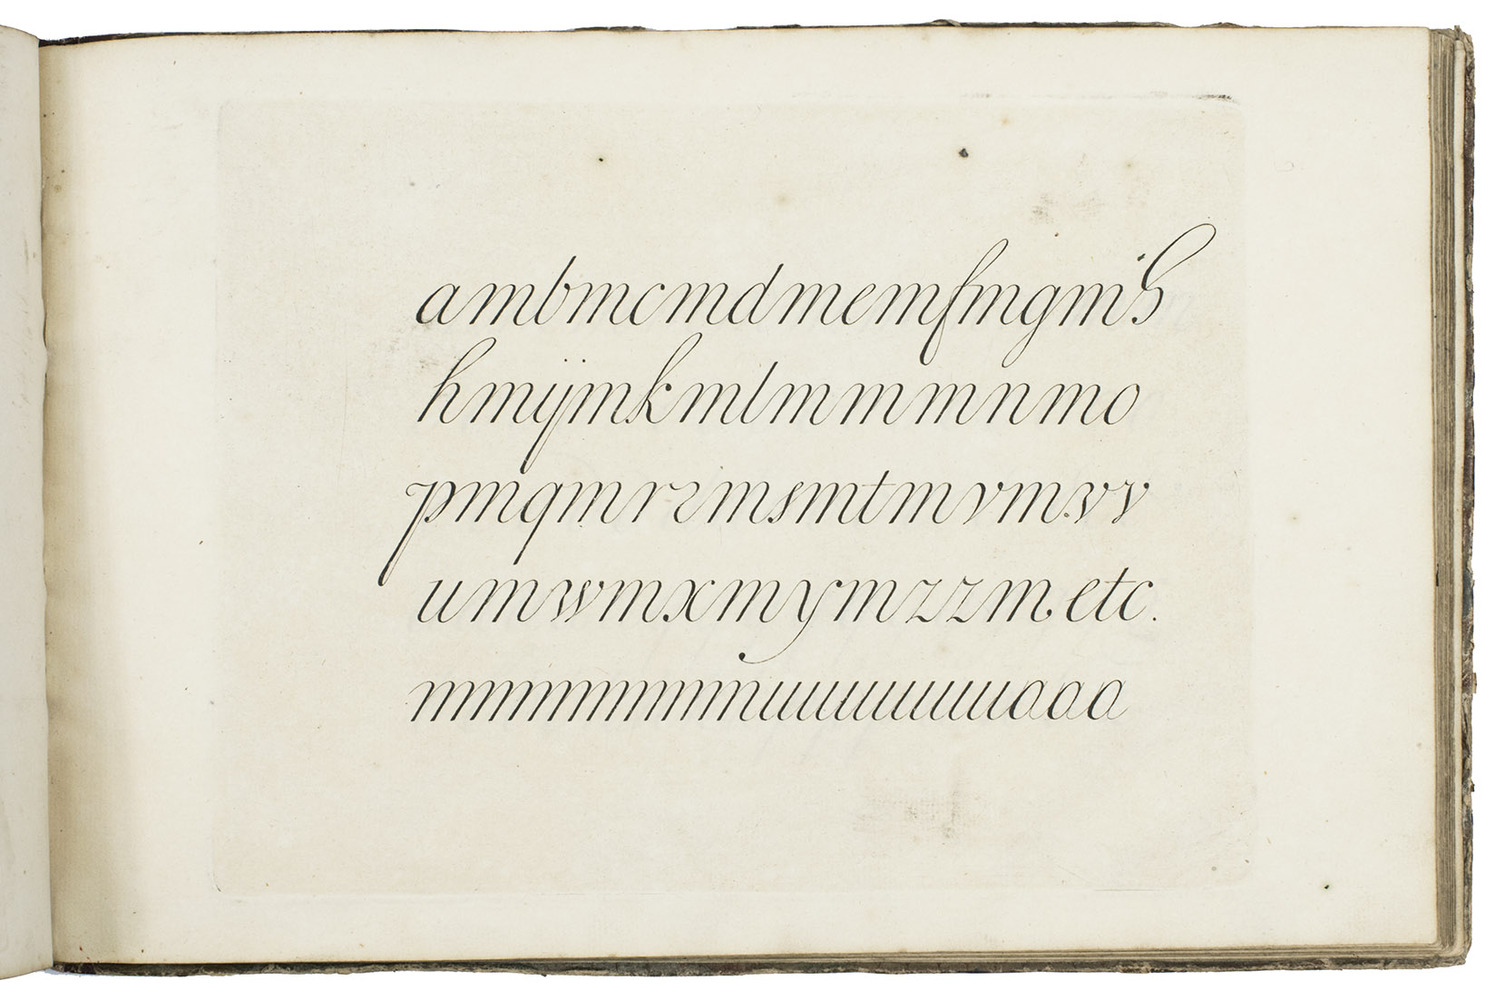 ambmcmdmemfmgmh
hmijmkmlmmmnmo
pmqmrzmsmtmvmvv
umwmxmymzzm etc.
mmmmmmnuuuuuuuuaaa